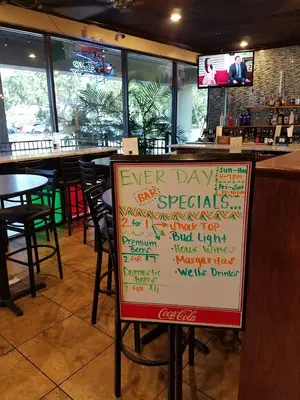 EVERY DAY
BAR
SPECIALS...
Sun-Thur
4-7PM
Fri-Sat
2 for 1
Premium
Beers
2 for $7
Domestic
Beers
2 for $4
What's on TAP
Bud Light
House Wines
Margaritas
Wells Drinks
Coca-Cola